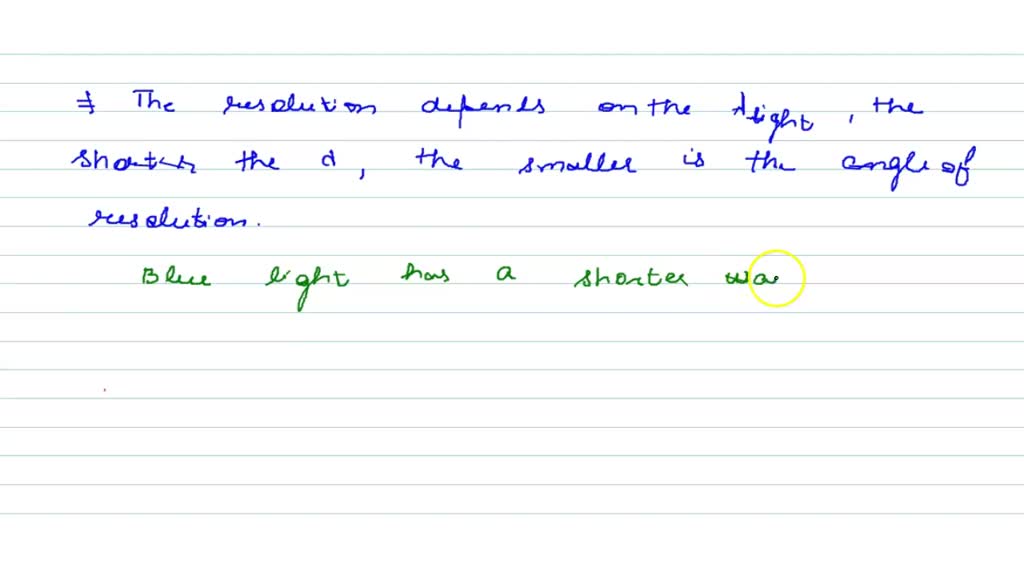 ⇒ The resolution depends on the λlight, the
shorter the λ, the smaller is the angle of
resolution.
Blue light has a shorter wa